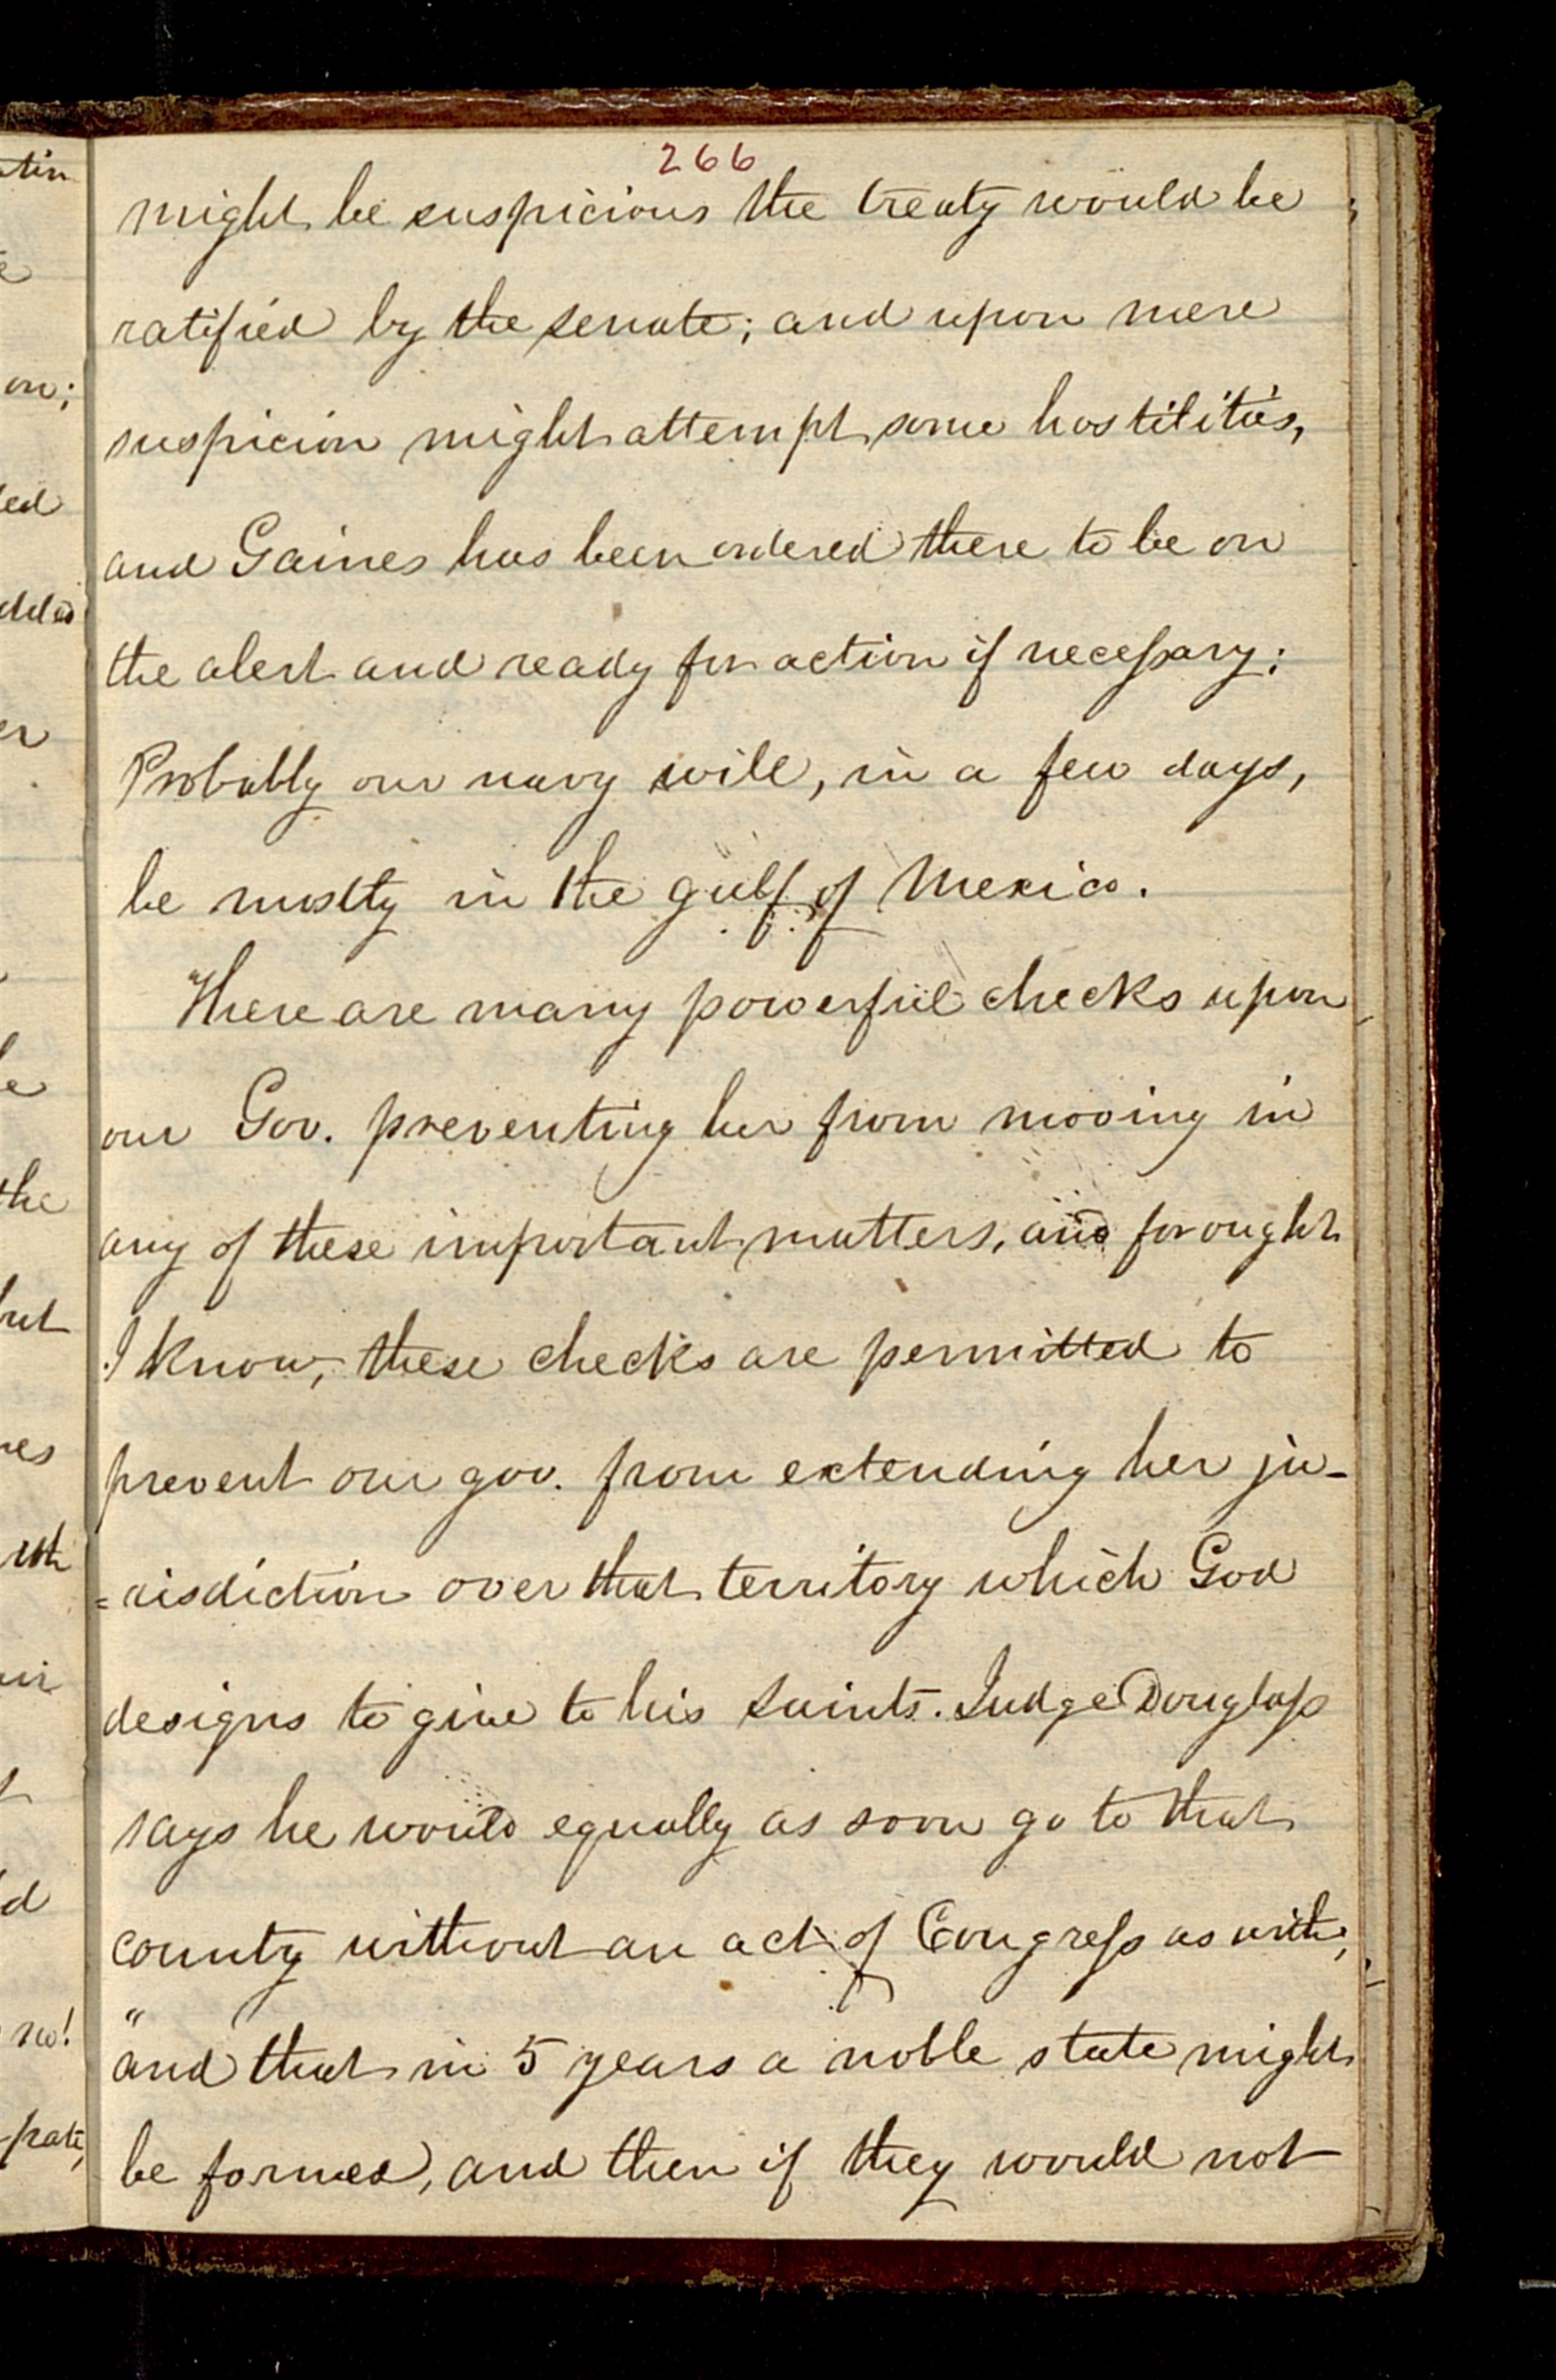 266
might be suspicious the treaty would be
ratified by the senate; and upon mere
suspicion might attempt some hostilities,
and Gaines has been ordered there to be on
the alert and ready for action if necessary:
Probably our navy will, in a few days,
be mostly in the gulf of Mexico.
There are many powerful checks upon
our Gov. preventing her from moving in
any of these important matters, and for ought
I know, these checks are permitted to
prevent our gov. from extending her ju-
=risdiction over that territory which God
designs to give to his saints. Judge Douglass
says he would equally as soon go to that
county without an act of Congress as with;
"and that in 5 years a noble state might
be formed, and then if they would not